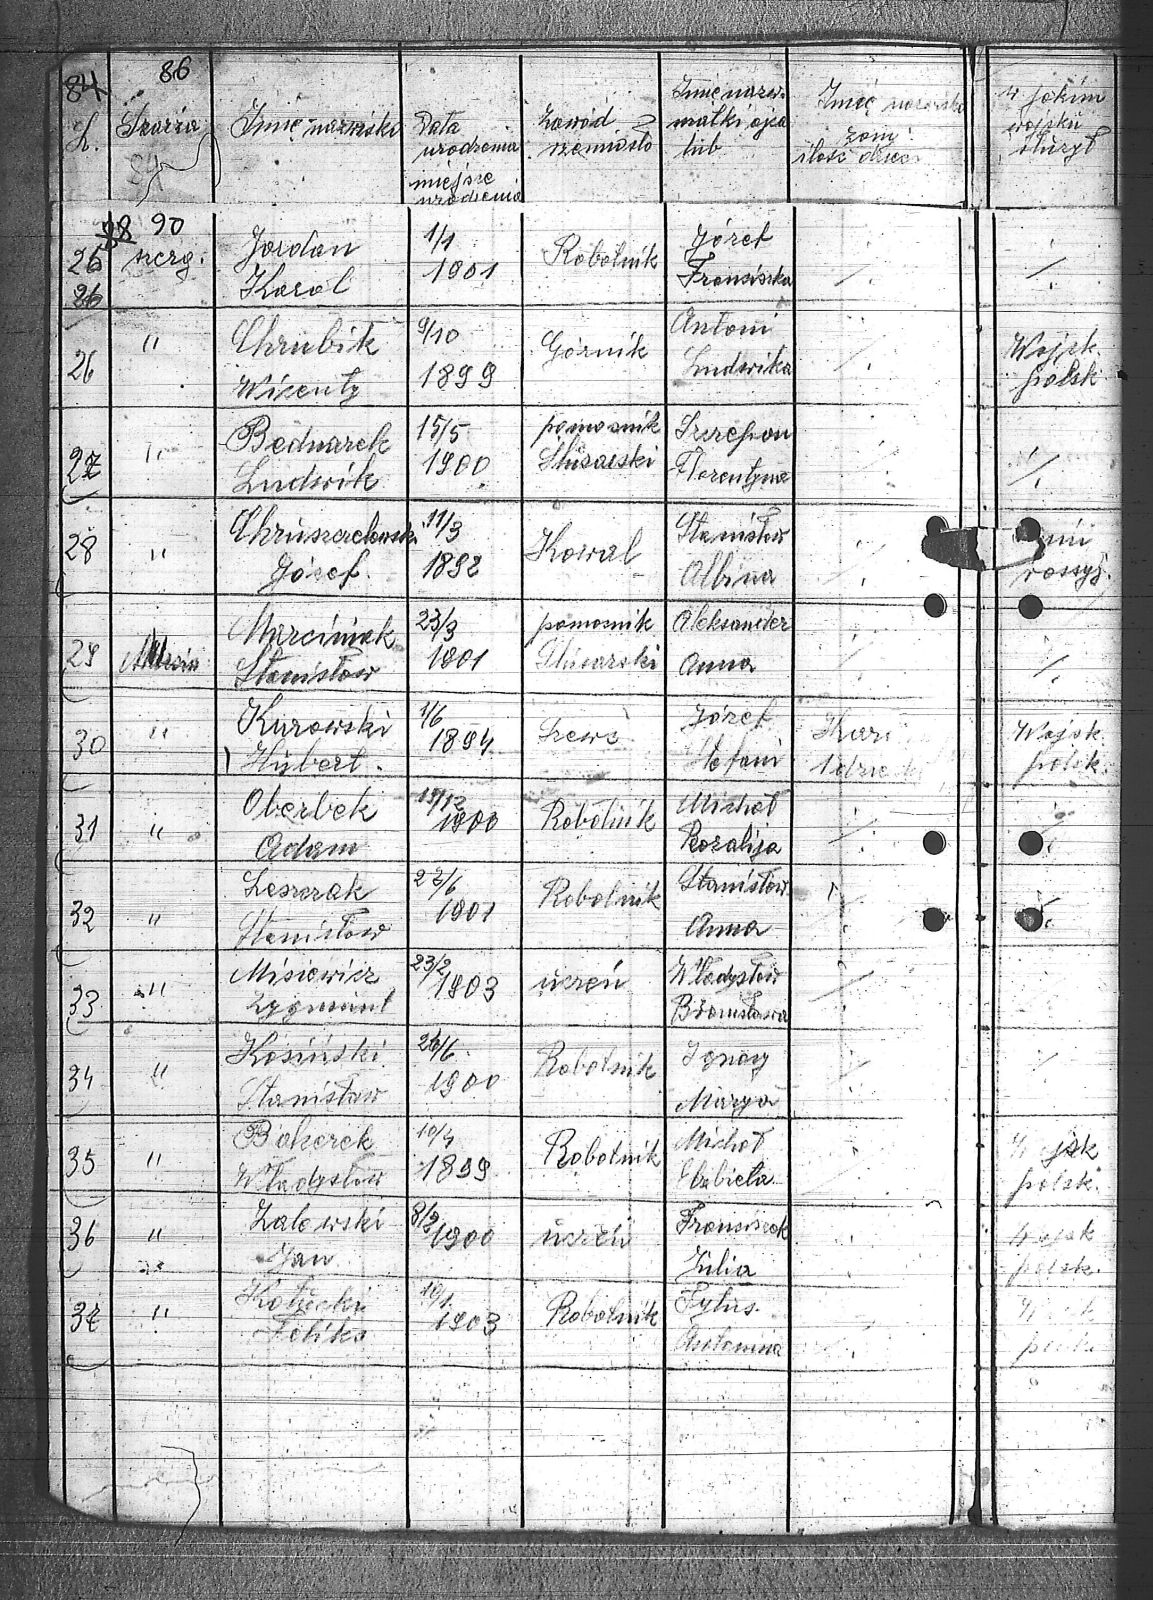 84 86
L. Szarża Imię nazwisko Data urodzenia miejsce urodzenia Zawód rzemiosło Imię nazw. matki ojca lub Imię nazwisko żony ilość dzieci w jakim wojsku służył
90
25 szerg. Jordan 1/1 Robotnik Józef
26 Karol 1901 Franciszka
26 " Chrubik 9/10 Górnik Antoni Wojsk.
Wicenty 1899 Ludwika polsk
27 " Bednarek 15/5 pomocnik Szczepon
Ludwik 1900 Ślusarski Florentyna
28 " Chruszczelewski 11/3 Kowal Stanisław
Józef. 1892 Albina rossyj.
29 Marciniak 23/3 pomocnik Aleksander
Stanisław 1901 Ślusarski Anna
30 " Kurowski 1/6 Szewc Józef Wojsk
Hubert. 1894 Stefani polsk.
31 " Oberbek 15/12 Robotnik Michał
Adam 1900 Rozalija
32 " Leszczak 22/6 Robotnik Stanisław
Stanisław 1901 Anna
33 " Misiewicz 23/2 uczeń Władysław
Zygmunt 1903 Bronisława
34 " Kosiński 26/6 Robotnik Ignacy
Stanisław 1900 Marya
35 " Bakerek 10/4 Robotnik Michał
Władysław 1899 Elzbieta polsk.
36 " Zalewski 8/2 uczeń Franciszek
Jan 1900 Julia polsk.
37 " 10/1 Robotnik Tytus.
Feliks 1903 Antonina